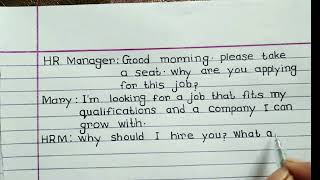 HR Manager: Good morning. please take
a seat. why are you applying
for this job?
Mary: I'm looking for a job that fits my
qualifications and a company I can
grow with.
HRM: why should I hire you? What a